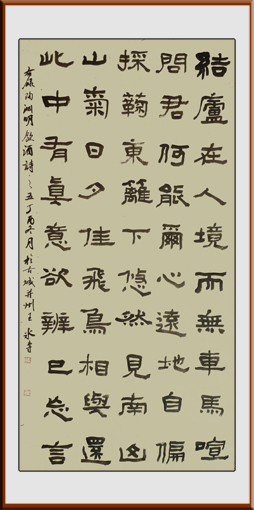 結廬在人境而無車馬喧
問君何能爾心遠地自偏
採鞠東籬下悠然見南山
山氣日夕佳飛鳥相與還
此中有眞意欲辨已忘言
右錄陶淵明飲酒詩之五丁酉冬月於古城并州王